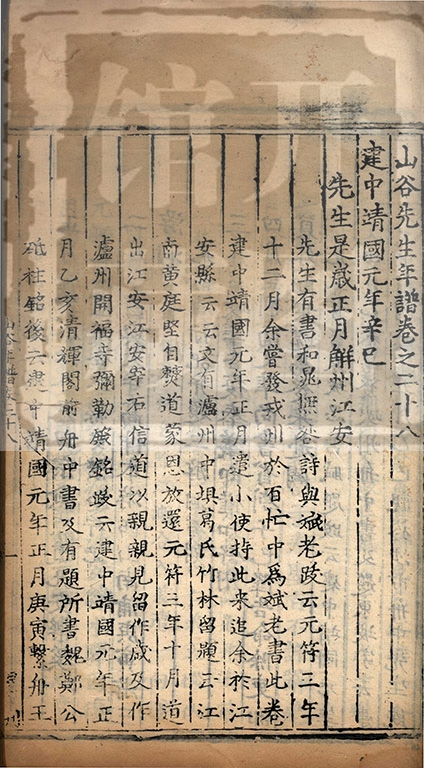 山谷先生年譜卷之二十八
建中靖國元年辛巳
先生是歲正月解舟江安
先生有書和晁無咎詩與斌老跋云元符三年
十二月余嘗發戎州於百忙中爲斌老書此卷
建中靖國元年正月遣小使持此來追余於江
安縣云云又有瀘州中垻葛氏竹林留題云江
南黄庭堅自僰道蒙恩放還元符三年十月道
出江安江安宰石信道以親親見留作歲及作
瀘州開福寺彌勒殿銘跋云建中靖國元年正
月乙亥清輝閣前舟中書及有題所書魏鄭公
砥柱銘後云建中靖國元年正月庚寅繫舟王
山谷年譜卷二十八
一
开馆